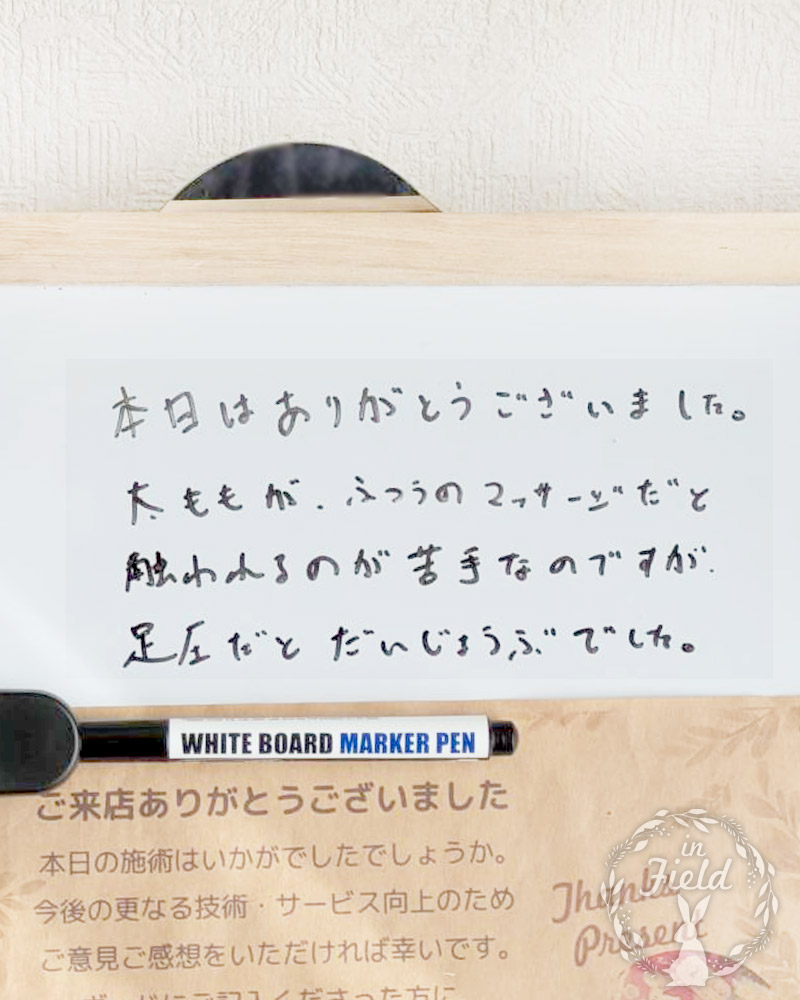 本日はありがとうございました。
太ももが、ふつうのマッサージだと
触われるのが苦手なのですが、
足圧だとだいじょうぶでした。
WHITE BOARD MARKER PEN
ご来店ありがとうございました
本日の施術はいかがでしたでしょうか。
今後の更なる技術・サービス向上のため
ご意見ご感想をいただければ幸いです。
Thanks
Present
in
Field